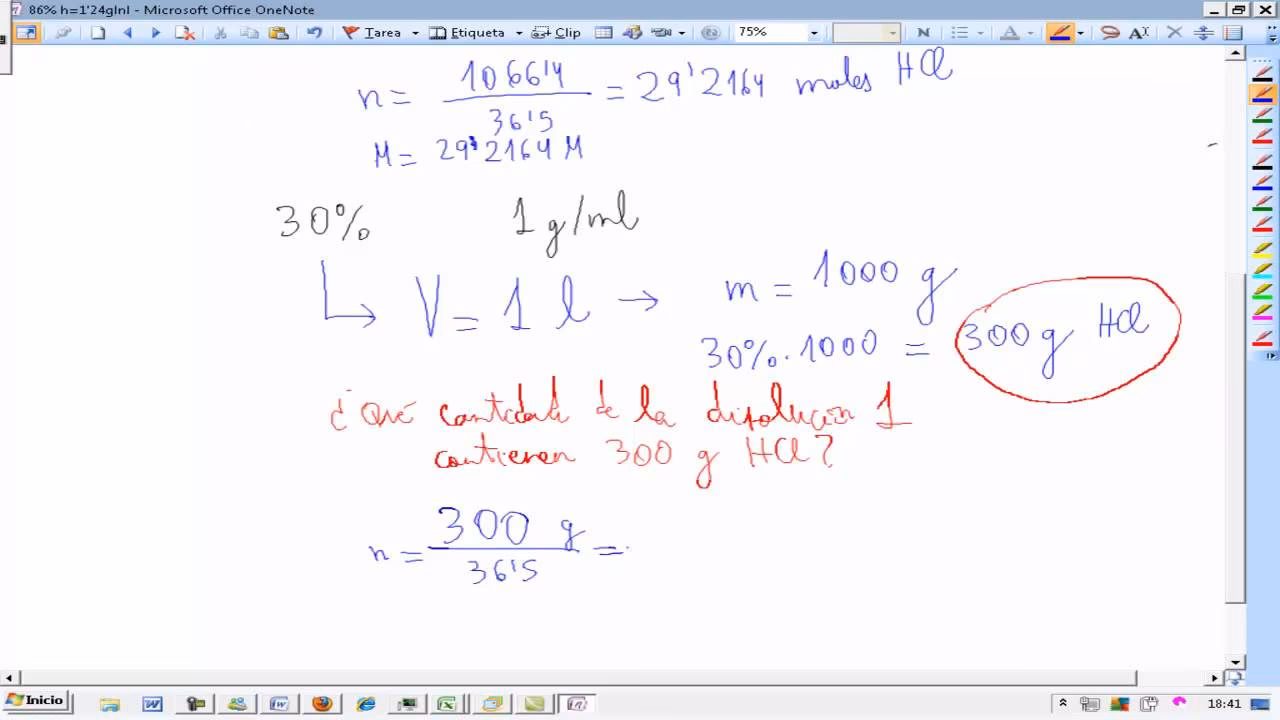 86% h=1'24glnl - Microsoft Office OneNote
Tarea Etiqueta Clip 75% N A A
n = 1066'4 / 36'5 = 29'2164 moles HCl
M = 29'2164 M
30% 1 g/ml
V = 1 l → m = 1000 g
30% · 1000 = 300 g HCl
¿ Qué cantidad de la disolución 1
contienen 300 g HCl?
n = 300 g / 36'5 =
Inicio 18:41